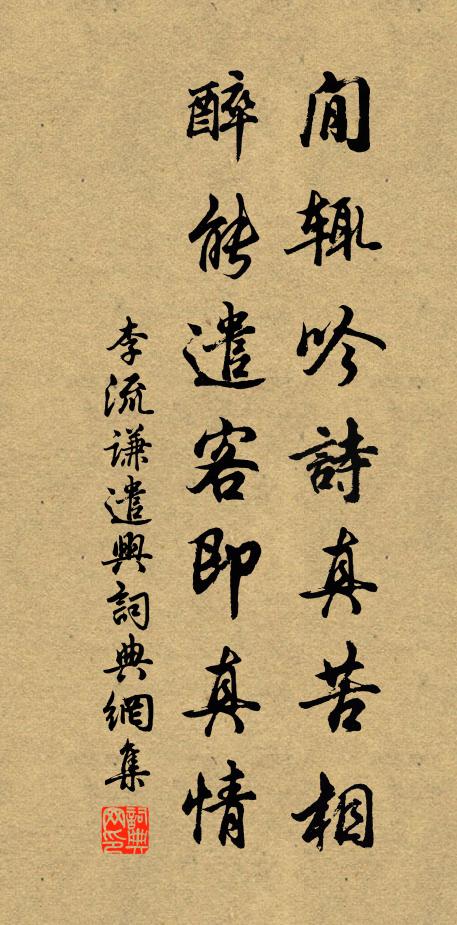 閒輒吟詩真苦相
醉能遣客即真情
李流謙遣興詞典網集
詞典網印